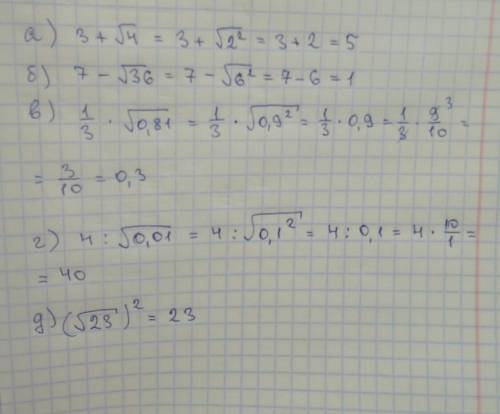 а) 3 + √4 = 3 + √2² = 3 + 2 = 5
б) 7 - √36 = 7 - √6² = 7 - 6 = 1
в) 1/3 · √0,81 = 1/3 · √0,9² = 1/3 · 0,9 = 1/3 · 9/10 ³ =
= 3/10 = 0,3
г) 4 : √0,01 = 4 : √0,1² = 4 : 0,1 = 4 · 10/1 =
= 40
д) (√23)² = 23